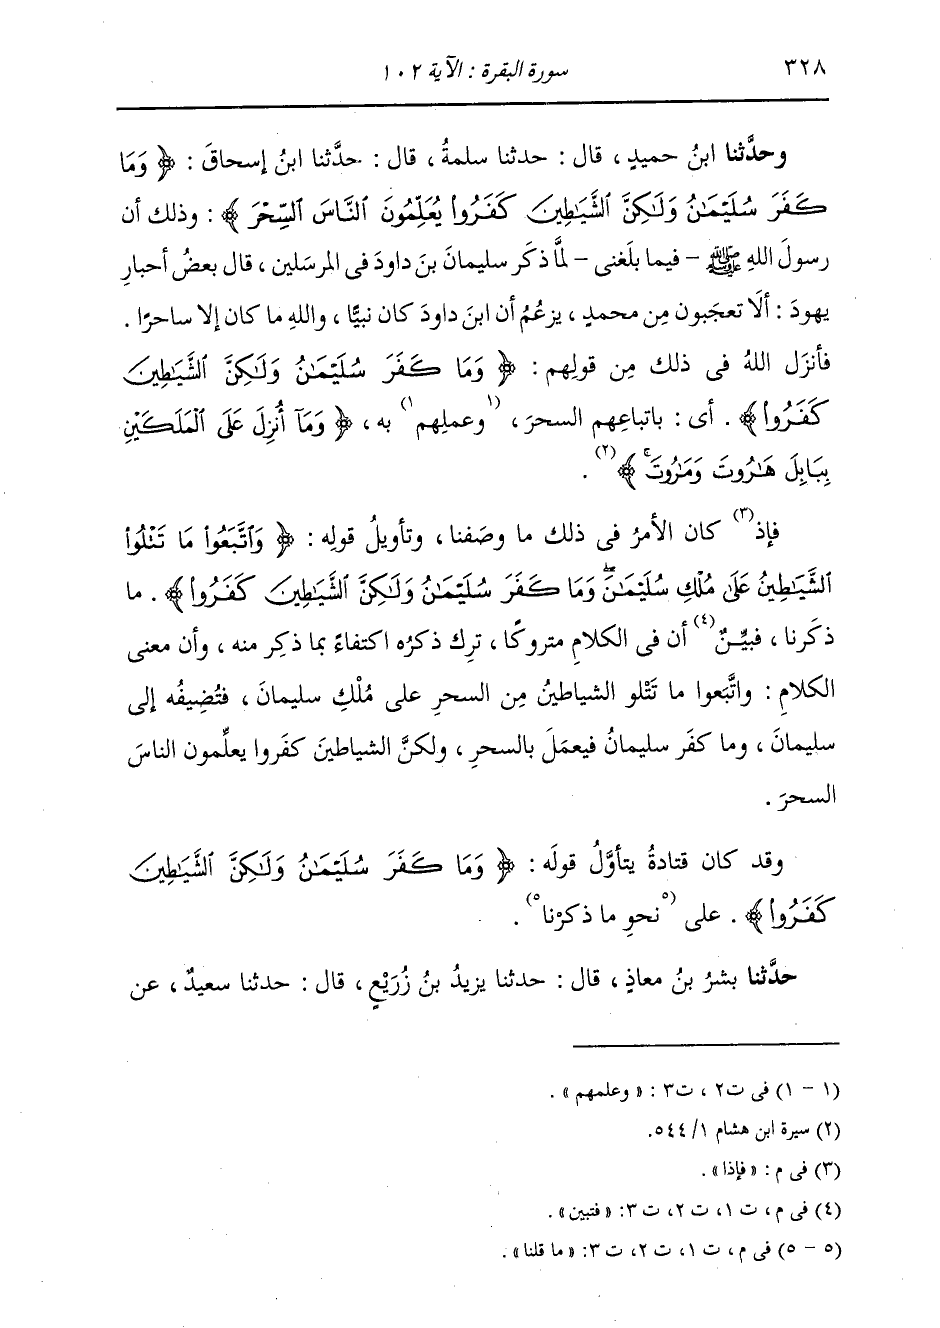 ٣٢٨ سورة البقرة : الآية ١٠٢
وحدَّثنا ابنُ حميدٍ ، قال : حدثنا سلمةُ ، قال : حدَّثنا ابنُ إسحاقَ : ﴿ وَمَا
كَفَرَ سُلَيْمَٰنُ وَلَٰكِنَّ ٱلشَّيَٰطِينَ كَفَرُوا۟ يُعَلِّمُونَ ٱلنَّاسَ ٱلسِّحْرَ ﴾ : وذلك أن
رسولَ اللهِ ﷺ - فيما بلَغنى - لمَّا ذكَر سليمانَ بنَ داودَ فى المرسَلين ، قال بعضُ أحبارِ
يهودَ : ألَا تعجَبون مِن محمدٍ ، يزعُمُ أن ابنَ داودَ كان نبيًّا ، واللهِ ما كان إلا ساحرًا .
فأنزَل اللهُ فى ذلك مِن قولِهم : ﴿ وَمَا كَفَرَ سُلَيْمَٰنُ وَلَٰكِنَّ ٱلشَّيَٰطِينَ
كَفَرُوا۟ ﴾ . أى : باتباعِهم السحرَ ، (١وعملِهم١) به ، ﴿ وَمَآ أُنزِلَ عَلَى ٱلْمَلَكَيْنِ
بِبَابِلَ هَٰرُوتَ وَمَٰرُوتَ ۚ ﴾(٢) .
فإذ(٣) كان الأمرُ فى ذلك ما وصَفنا ، وتأويلُ قولِه : ﴿ وَٱتَّبَعُوا۟ مَا تَتْلُوا۟
ٱلشَّيَٰطِينُ عَلَىٰ مُلْكِ سُلَيْمَٰنَ ۖ وَمَا كَفَرَ سُلَيْمَٰنُ وَلَٰكِنَّ ٱلشَّيَٰطِينَ كَفَرُوا۟ ﴾ . ما
ذكَرنا ، فبيِّنٌ(٤) أن فى الكلامِ متروكًا ، ترِك ذكرُه اكتفاءً بما ذكِر منه ، وأن معنى
الكلامِ : واتَّبَعوا ما تَتْلو الشياطينُ مِن السحرِ على مُلْكِ سليمانَ ، فتُضِيفُه إلى
سليمانَ ، وما كفَر سليمانُ فيعمَلَ بالسحرِ ، ولكنَّ الشياطينَ كفَروا يعلِّمون الناسَ
السحرَ .
وقد كان قتادةُ يتأوَّلُ قولَه : ﴿ وَمَا كَفَرَ سُلَيْمَٰنُ وَلَٰكِنَّ ٱلشَّيَٰطِينَ
كَفَرُوا۟ ﴾ . على (٥نحوِ ما ذكرْنا٥) .
حدَّثنا بشرُ بنُ معاذٍ ، قال : حدثنا يزيدُ بنُ زُرَيْعٍ ، قال : حدثنا سعيدٌ ، عن
(١ - ١) فى ت٢ ، ت٣ : « وعلمهم » .
(٢) سيرة ابن هشام ١/ ٥٤٤.
(٣) فى م : « فإذا » .
(٤) فى م، ت ١، ت ٢، ت ٣: « فتبين » .
(٥ - ٥) فى م، ت ١، ت ٢، ت ٣: « ما قلنا » .